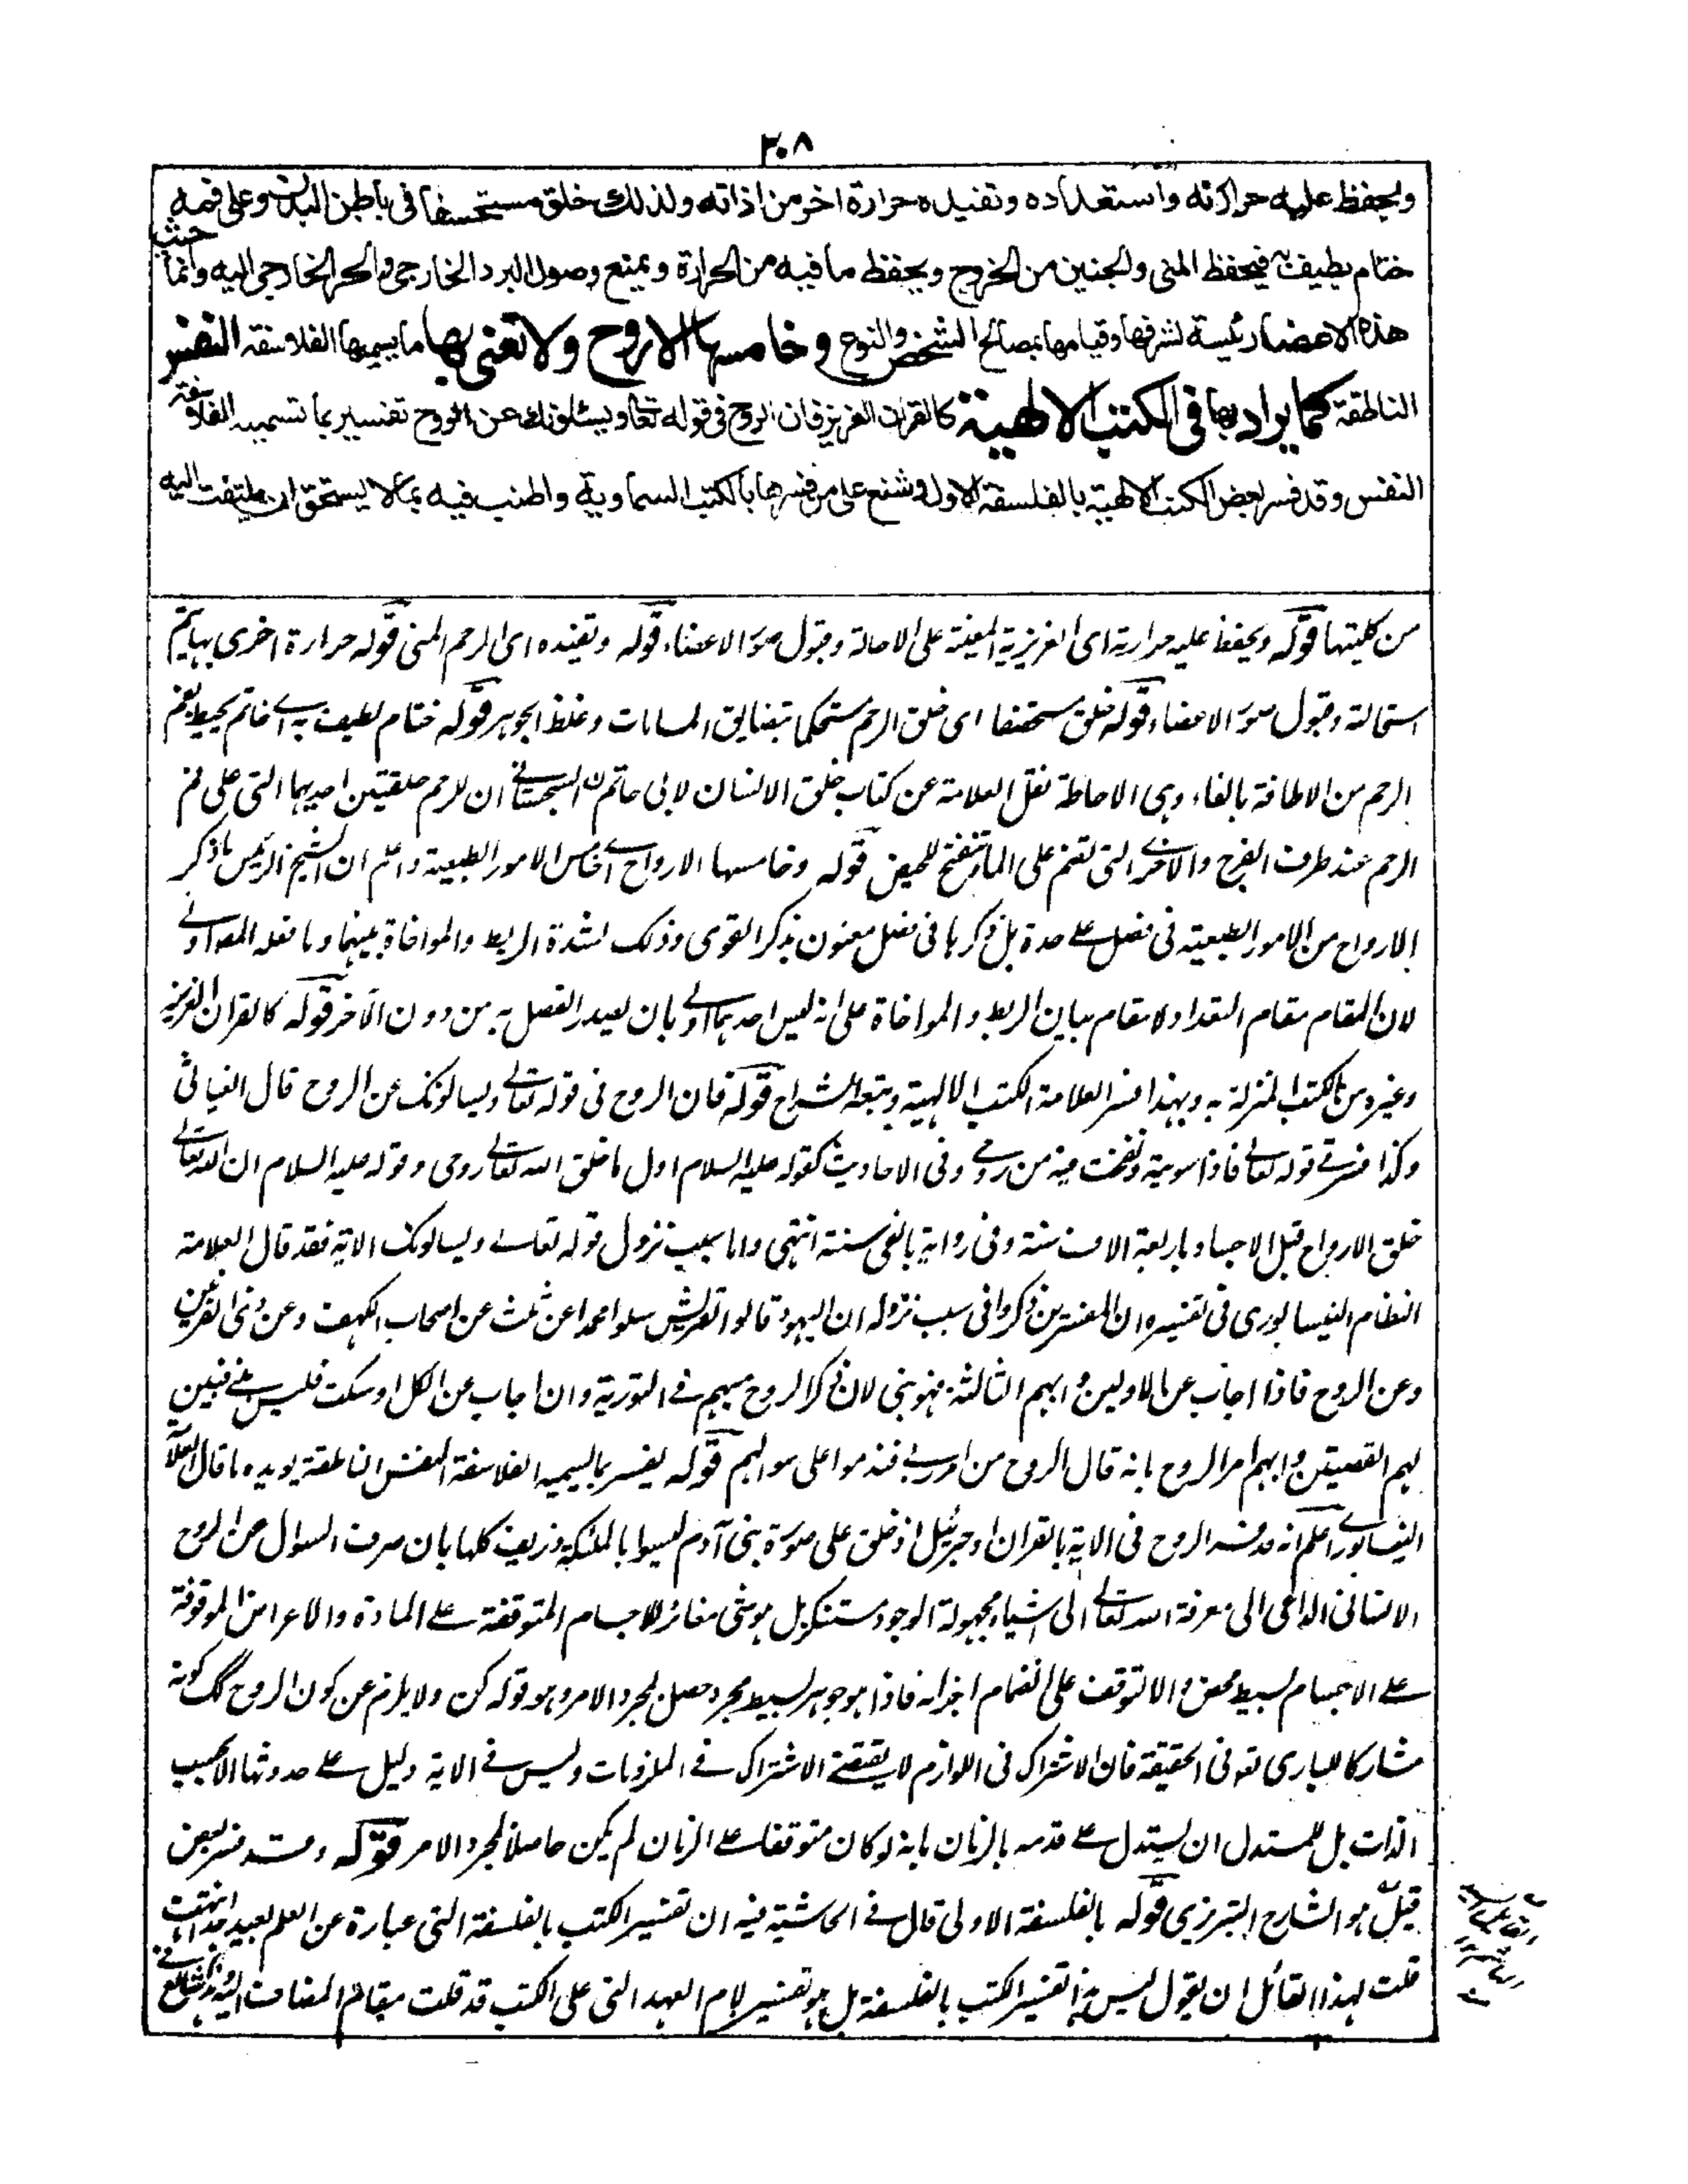 ٣٠٨
ويحفظ عليه حرارته واستعداده وتفيده حرارة اخر من اذاته ولذلك خلق مستحصفا في باطن البدن وعلى فمه
ختام يطيف به فيحفظ المنى والجنين من الخروج ويحفظ ما فيه من الحرارة ويمنع وصول البرد الخارجى والحر الخارجى اليه وانما حيث
هذه الاعضا رئيسة لشرفها وقيامها بمصالح الشخص والنوع وخامسها الاروح ولا تعنى بها ما يسميها الفلاسفة النفس
الناطقة كما يراد بها فى الكتب الالهية كالقران العزيز فان الروح فى قوله تعا ويسئلونك عن الروح تفسير بما تسميه الفلاسفة
النفس وقد فسر بعض الكتب الالهية بالفلسفة الاولى وشنع على من فسرها بالكتب السماوية واطنب فيه بمالا يستحق ان يلتفت اليه
من كليتها قوله ويحفظ عليه حرارته اى الغريزية المعينة على الاحالة وقبول صور الاعضاء قوله وتفيده اى الرحم المنى قوله حرارة اخرى بها يتم
استحالته وقبول صور الاعضاء قوله خلق مستحصفا اى خلق الرحم مستحكما بتضايق المسامات وغلظ الجوهر قوله ختام يطيف به اے خاتم يحيط بفم
الرحم من الاطافة بالفاء وہى الاحاطة نقل العلامة عن كتاب خلق الانسان لابى حاتم السجستانے ان للرحم حلقيتين احديہما التى على فم
الرحم عند طرف الفرج والاخرے التى تضم على الماء وتنفتح للحيض قوله وخامسہا الارواح اے خامس الامور الطبيعية واعلم ان الشيخ الرئيس ما ذكر
الارواح من الامور الطبيعية فى فصل علے حدة بل ذكرہا فى فصل معنون بذكر القوى وذلک لشدة الربط والمواخاة بينہما وما فعله المص اولے
لان المقام مقام التعداد لا مقام بيان الربط والمواخاة على انه ليس احدہما اولے بان يصدر الفصل به من دون الآخر قوله كالقران العزيز
وغيره من الكتب المنزلة به وبہذا فسر العلامة الكتب الالہية وتبعه الشراح قوله فان الروح فى قوله تعالے ويسالونک عن الروح قال الغياثى
وكذا فسر فے قوله تعالے فاذا سويته ونفخت فيه من روحے وفى الاحاديث كقوله عليه السلام اول ما خلق الله تعالے روحى وقوله عليه السلام ان الله تعالے
خلق الارواح قبل الاجساد باربعة الاف سنة وفى رواية بالفى سنة انتہى واما سبب نزول قوله تعالے ويسالونک الاية فقد قال العلامة
النظام النيسابورى فى تفسيره ان المفسرين ذكروا فى سبب نزوله ان اليہود قالوا لقريش سلوا محمدا عن ثلث عن اصحاب الكہف وعن ذى القرنين
وعن الروح فاذا اجاب عن الاولين وابہم الثالثة فہو نبى لان ذكر الروح مبہم فے التورية وان اجاب عن الكل او سكت فليس بنبے فبين
لہم القصتين وابہم امر الروح بانه قال الروح من امر ربے فندموا على سوالہم قوله يفسر بما يسميه الفلاسفة النفس الناطقة يويده ما قال العلامة
النيسابورے اعلم انه قد فسر الروح فى الاية بالقران او جبرئيل او خلق على صورة بنى آدم ليسوا بالملٰئكة وزيف كلہا بان صرف السوال عن الروح
الانسانى الداعى الى معرفة الله تعالے الى اشياء مجہولة الوجود مستنكر بل ہو شى مغائر للاجسام المتوقفة علے المادة والاعراض الموقوفة
علے الاجسام بسيط محض والا لتوقف على انضمام اجزائه فاذا ہو جوہر بسيط مجرد حصل بمجرد الامر وہو قوله كن ولا يلزم عن كون الروح كک كونه
مشاركا للبارى تع فى الحقيقة فان الاشتراک فى اللوازم لا يقتضے الاشتراک فے الملزومات وليس فے الاية دليل علے حدوثہا الا بحسب
الذات بل للمستدل ان يستدل علے قدمه بالزمان بانه لو كان متوقفا علے الزمان لم يكن حاصلا بمجرد الامر قوله وقد فسر بعض
قيل ہو الشارح التبريزى قوله بالفلسفة الاولى قال فے الحاشية فيه ان تفسير الكتب بالفلسفة التى عبارة عن العلم بعيد جدا انتہت
قلت لہذا القائل ان يقول ليس ہذا تفسير الكتب بالفلسفة بل ہو تفسير لام العہد التى على الكتب قد قلت مقام المضاف اليه